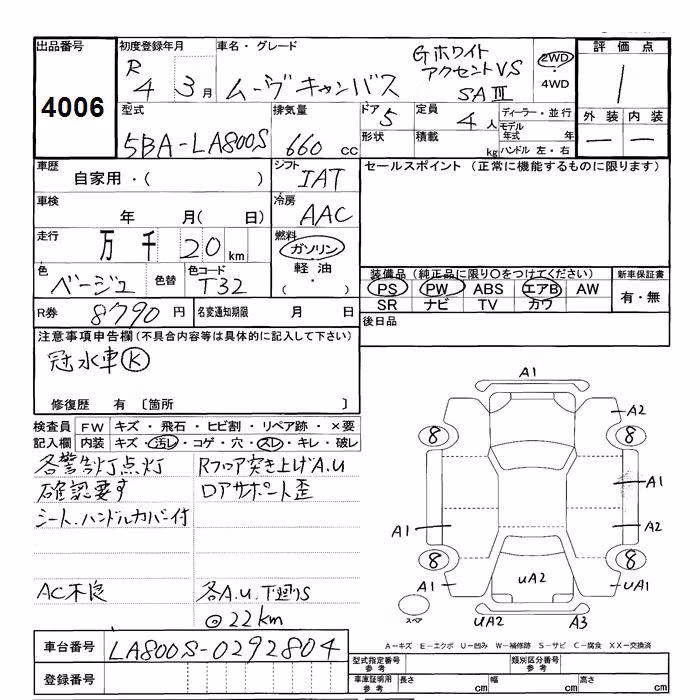 出品番号
4006
初度登録年月
R 4 3月
車名・グレード
ムーヴキャンバス
Gホワイト
アクセントVS
SAⅢ
2WD
・
4WD
評価点
1
外装 内装
— —
型式
5BA-LA800S
排気量
660 cc
ドア 5
形状
定員 4 人
積載 kg
ディーラー・並行
モデル年式 年
ハンドル 左・右
車歴
自家用・( )
シフト
IAT
セールスポイント (正常に機能するものに限ります)
車検
年 月( 日)
冷房
AAC
走行
万 千 20 km
燃料
ガソリン
軽油
( ・ )
色
ベージュ
色替
色コード
T32
装備品 (純正品に限り○をつけてください)
PS PW ABS エアB AW
SR ナビ TV カワ
新車保証書
有・無
R券 8790 円
名変通知期限 月 日
後日品
注意事項申告欄 (不具合内容等は具体的に記入して下さい)
冠水車Ⓚ
修復歴 有 〔箇所 〕
検査員 FW キズ・飛石・ヒビ割・リペア跡・×要
記入欄 内装 キズ・汚レ・コゲ・穴・スレ・キレ・破レ
各警告灯点灯
確認要す
シート、ハンドルカバー付
AC不良
Rフロア突き上げA.U
ロアサポート歪
各A.U.下廻りS
@22km
A1
A2
8
8
A1
A1
A2
8
8
A1
UA2
UA1
スペア
UA2
A3
A-キズ E-エクボ U-凹み W-補修跡 S-サビ C-腐食 XX-交換済
車台番号 LA800S-0292804
登録番号
型式指定番号 参考
類別区分番号 参考
車庫証明用 参考
長さ cm
幅 cm
高さ cm